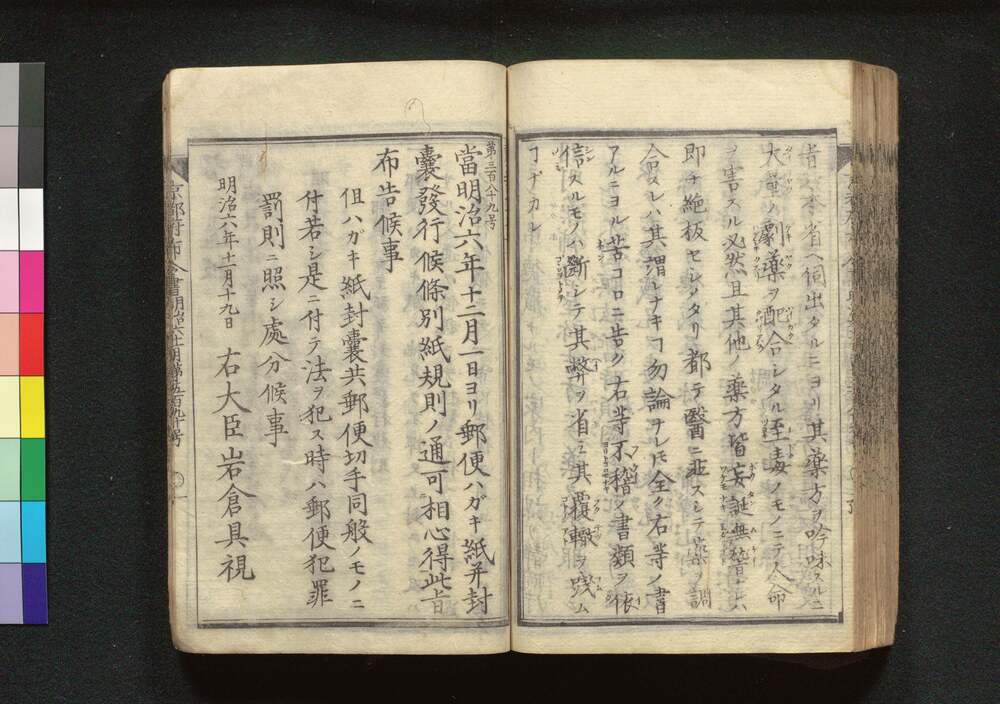 者ハ本省ヘ伺出タルニヨリ其藥方ヲ吟味スルニ
大半ノ劇藥ヲ配合シタル至毒ノモノニテ人命
ヲ害スル必然且其他ノ藥方皆妄誕無稽ナ
即チ絶板セシメタリ都テ醫ニ非スシテ藥ヲ調
合スレハ其謂レナキヿ勿論ナレモ全ク右等ノ書
アルニヨル苦コロニ告ク右等不稽ノ書類ヲ依
信スルモノハ斷シテ其弊ヲ省ミ其覆轍ヲ踐ム
ヿナカレ
第三百八十九号
當明治六年十二月一日ヨリ郵便ハガキ紙并封
囊發行候條別紙規則ノ通可相心得此旨
布告候事
但ハガキ紙封囊共郵便切手同般ノモノニ
付若シ是ニ付テ法ヲ犯ス時ハ郵便犯罪
罰則ニ照シ處分候事
明治六年十一月十九日 右大臣岩倉具視
京都府布令書明治六十一月第五百九十号 一